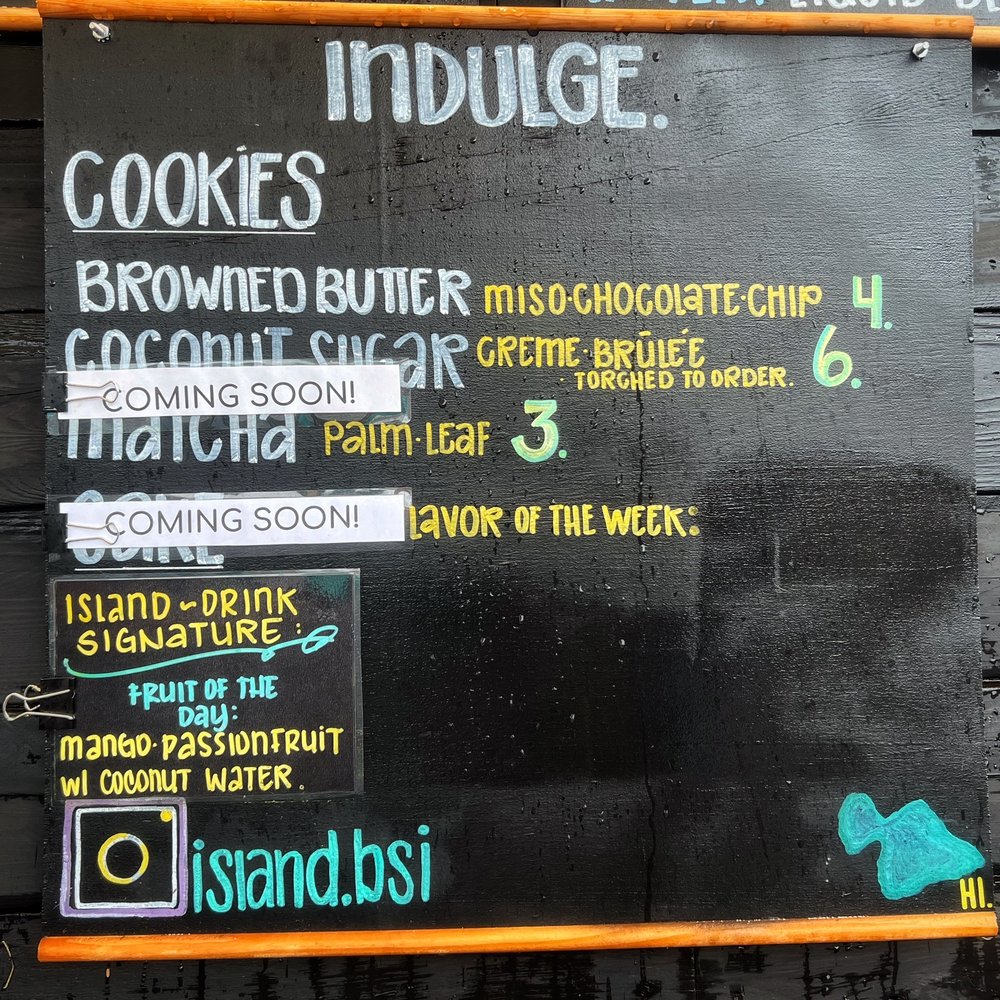 LIQUID
INDULGE.
COOKIES
BROWNED BUTTER MISO·CHOCOLATE·CHIP 4.
COCONUT SUGAR CREME·BRÛLÉE 6.
TORCHED TO ORDER.
COMING SOON!
MATCHA PALM·LEAF 3.
COMING SOON! LAVOR OF THE WEEK:
CAKE
ISLAND ~ DRINK
SIGNATURE:
FRUIT OF THE
DAY:
MANGO·PASSIONFRUIT
W/ COCONUT WATER.
island.bsi
HI.